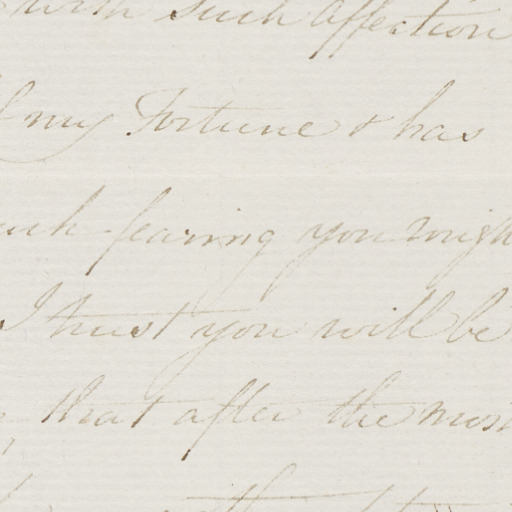 with such affection
my Fortune & has
fearing you migh
I trust you will be
that after the mos